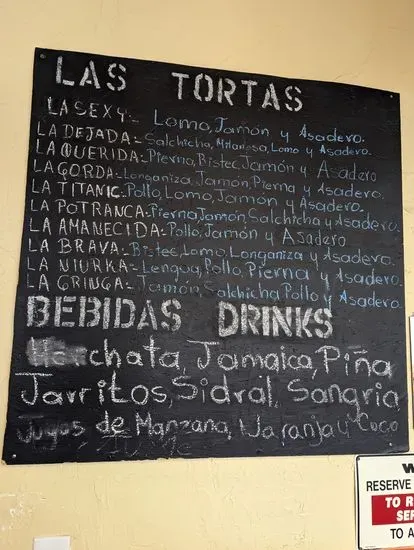 LAS TORTAS
LA SEXY:- Lomo, Jamón y Asadero.
LA DEJADA:- Salchicha, Milanesa, Lomo y Asadero.
LA QUERIDA:- Pierna, Bistec, Jamón y Asadero
LA GORDA:- Longaniza, Jamón, Pierna y Asadero.
LA TITANIC:- Pollo, Lomo, Jamón y Asadero.
LA POTRANCA:- Pierna, Jamón, Salchicha y Asadero.
LA AMANECIDA:- Pollo, Jamón y Asadero
LA BRAVA:- Bistec, Lomo, Longaniza y Asadero.
LA NIURKA:- Lengua, Pollo, Pierna y Asadero.
LA GRINGA:- Jamón, Salchicha, Pollo y Asadero.
BEBIDAS DRINKS
Horchata, Jamaica, Piña
Jarritos, Sidral, Sangria
Jugos de Manzana, Naranja y Coco
W
RESERVE
TO R
SER
TO A